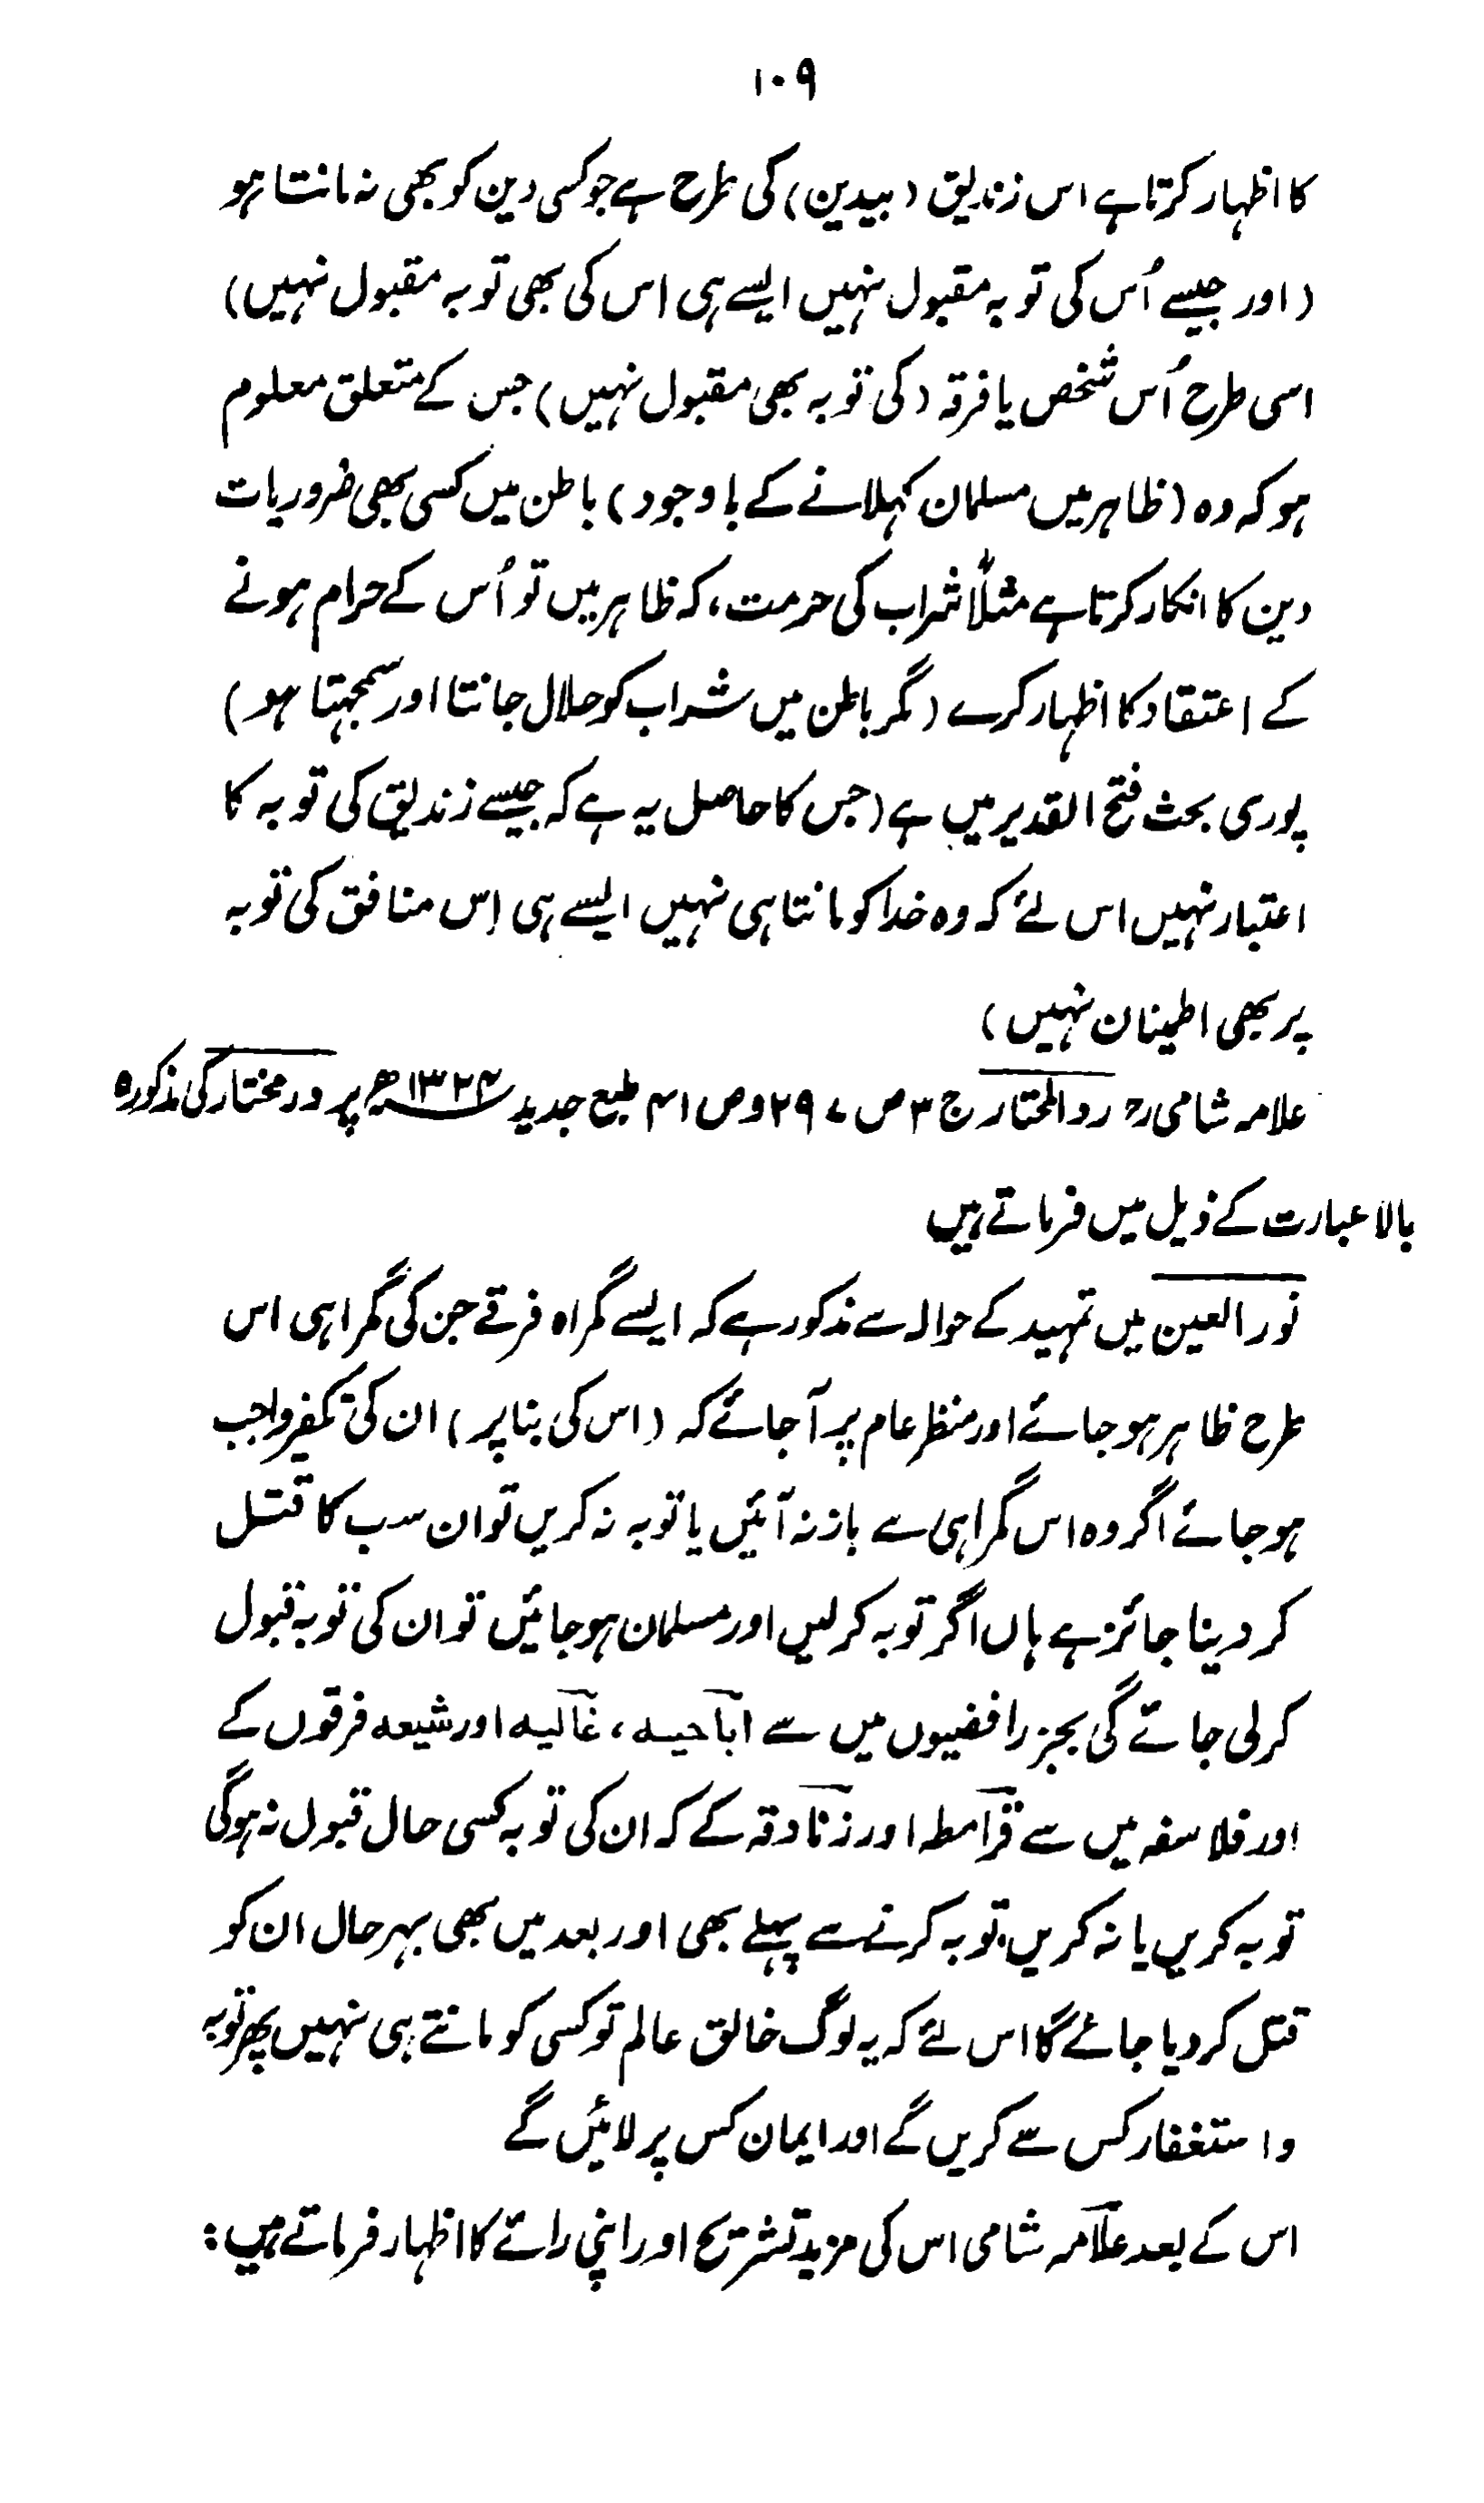 ۱۰۹
کا اظہار کرتا ہے اس زندیق (بیدین) کی طرح ہے جو کسی دین کو بھی نہ مانتا ہو
(اور جیسے اُس کی توبہ مقبول نہیں ایسے ہی اس کی بھی توبہ مقبول نہیں)
اسی طرح اُس شخص یا فرقہ (کی توبہ بھی مقبول نہیں) جس کے متعلق معلوم
ہو کہ وہ (ظاہر میں مسلمان کہلانے کے باوجود) باطن میں کسی بھی ضروریات
دین کا انکار کرتا ہے مثلاً شراب کی حرمت، کہ ظاہر میں تو اُس کے حرام ہونے
کے اعتقاد کا اظہار کرے (مگر باطن میں شراب کو حلال جانتا اور سمجھتا ہو)
پوری بحث فتح القدیر میں ہے (جس کا حاصل یہ ہے کہ جیسے زندیق کی توبہ کا
اعتبار نہیں اس لئے کہ وہ خدا کو مانتا ہی نہیں ایسے ہی اِس منافق کی توبہ
پر بھی اطمینان نہیں)
علامہ شامی رح رد المحتار ج ۳ ص ۲۹۷ و ص ۴۱ طبع جدید ۱۳۲۴ھ پر در مختار کی مذکورہ
بالا عبارت کے ذیل میں فرماتے ہیں
نور العین میں تمہید کے حوالہ سے مذکور ہے کہ ایسے گمراہ فرقے جن کی گمراہی اس
طرح ظاہر ہو جائے اور منظر عام پر آ جائے کہ (اس کی بنا پر) ان کی تکفیر واجب
ہو جائے اگر وہ اس گمراہی سے باز نہ آئیں یا توبہ نہ کریں تو ان سب کا قتل
کر دینا جائز ہے ہاں اگر توبہ کر لیں اور مسلمان ہو جائیں تو ان کی توبہ قبول
کر لی جائے گی بجز رافضیوں میں سے اباحیہ، غالیہ اور شیعہ فرقوں کے
اور فلاسفہ میں سے قرامطہ اور زنادقہ کے کہ ان کی توبہ کسی حال قبول نہ ہوگی
توبہ کریں یا نہ کریں، توبہ کرنے سے پہلے بھی اور بعد میں بھی بہر حال ان کو
قتل کر دیا جائے گا اس لئے کہ یہ لوگ خالق عالم تو کسی کو مانتے ہی نہیں پھر توبہ
و استغفار کس سے کریں گے اور ایمان کس پر لائیں گے
اس کے بعد علامہ شامی اس کی مزید تشریح اور اپنی رائے کا اظہار فرماتے ہیں: